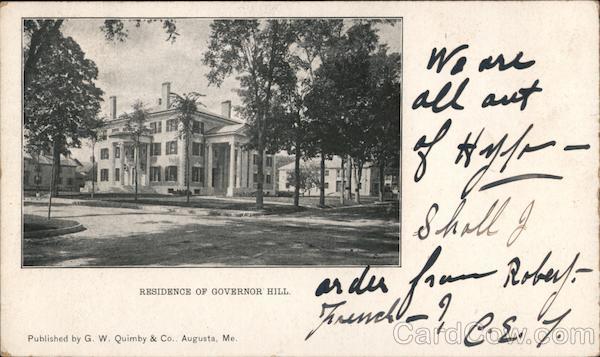 We are
all out
of Hypo —
Shall I
order from Robert
French — ?
C. E. Y.
RESIDENCE OF GOVERNOR HILL.
Published by G. W. Quimby & Co., Augusta, Me.
CardCow.com